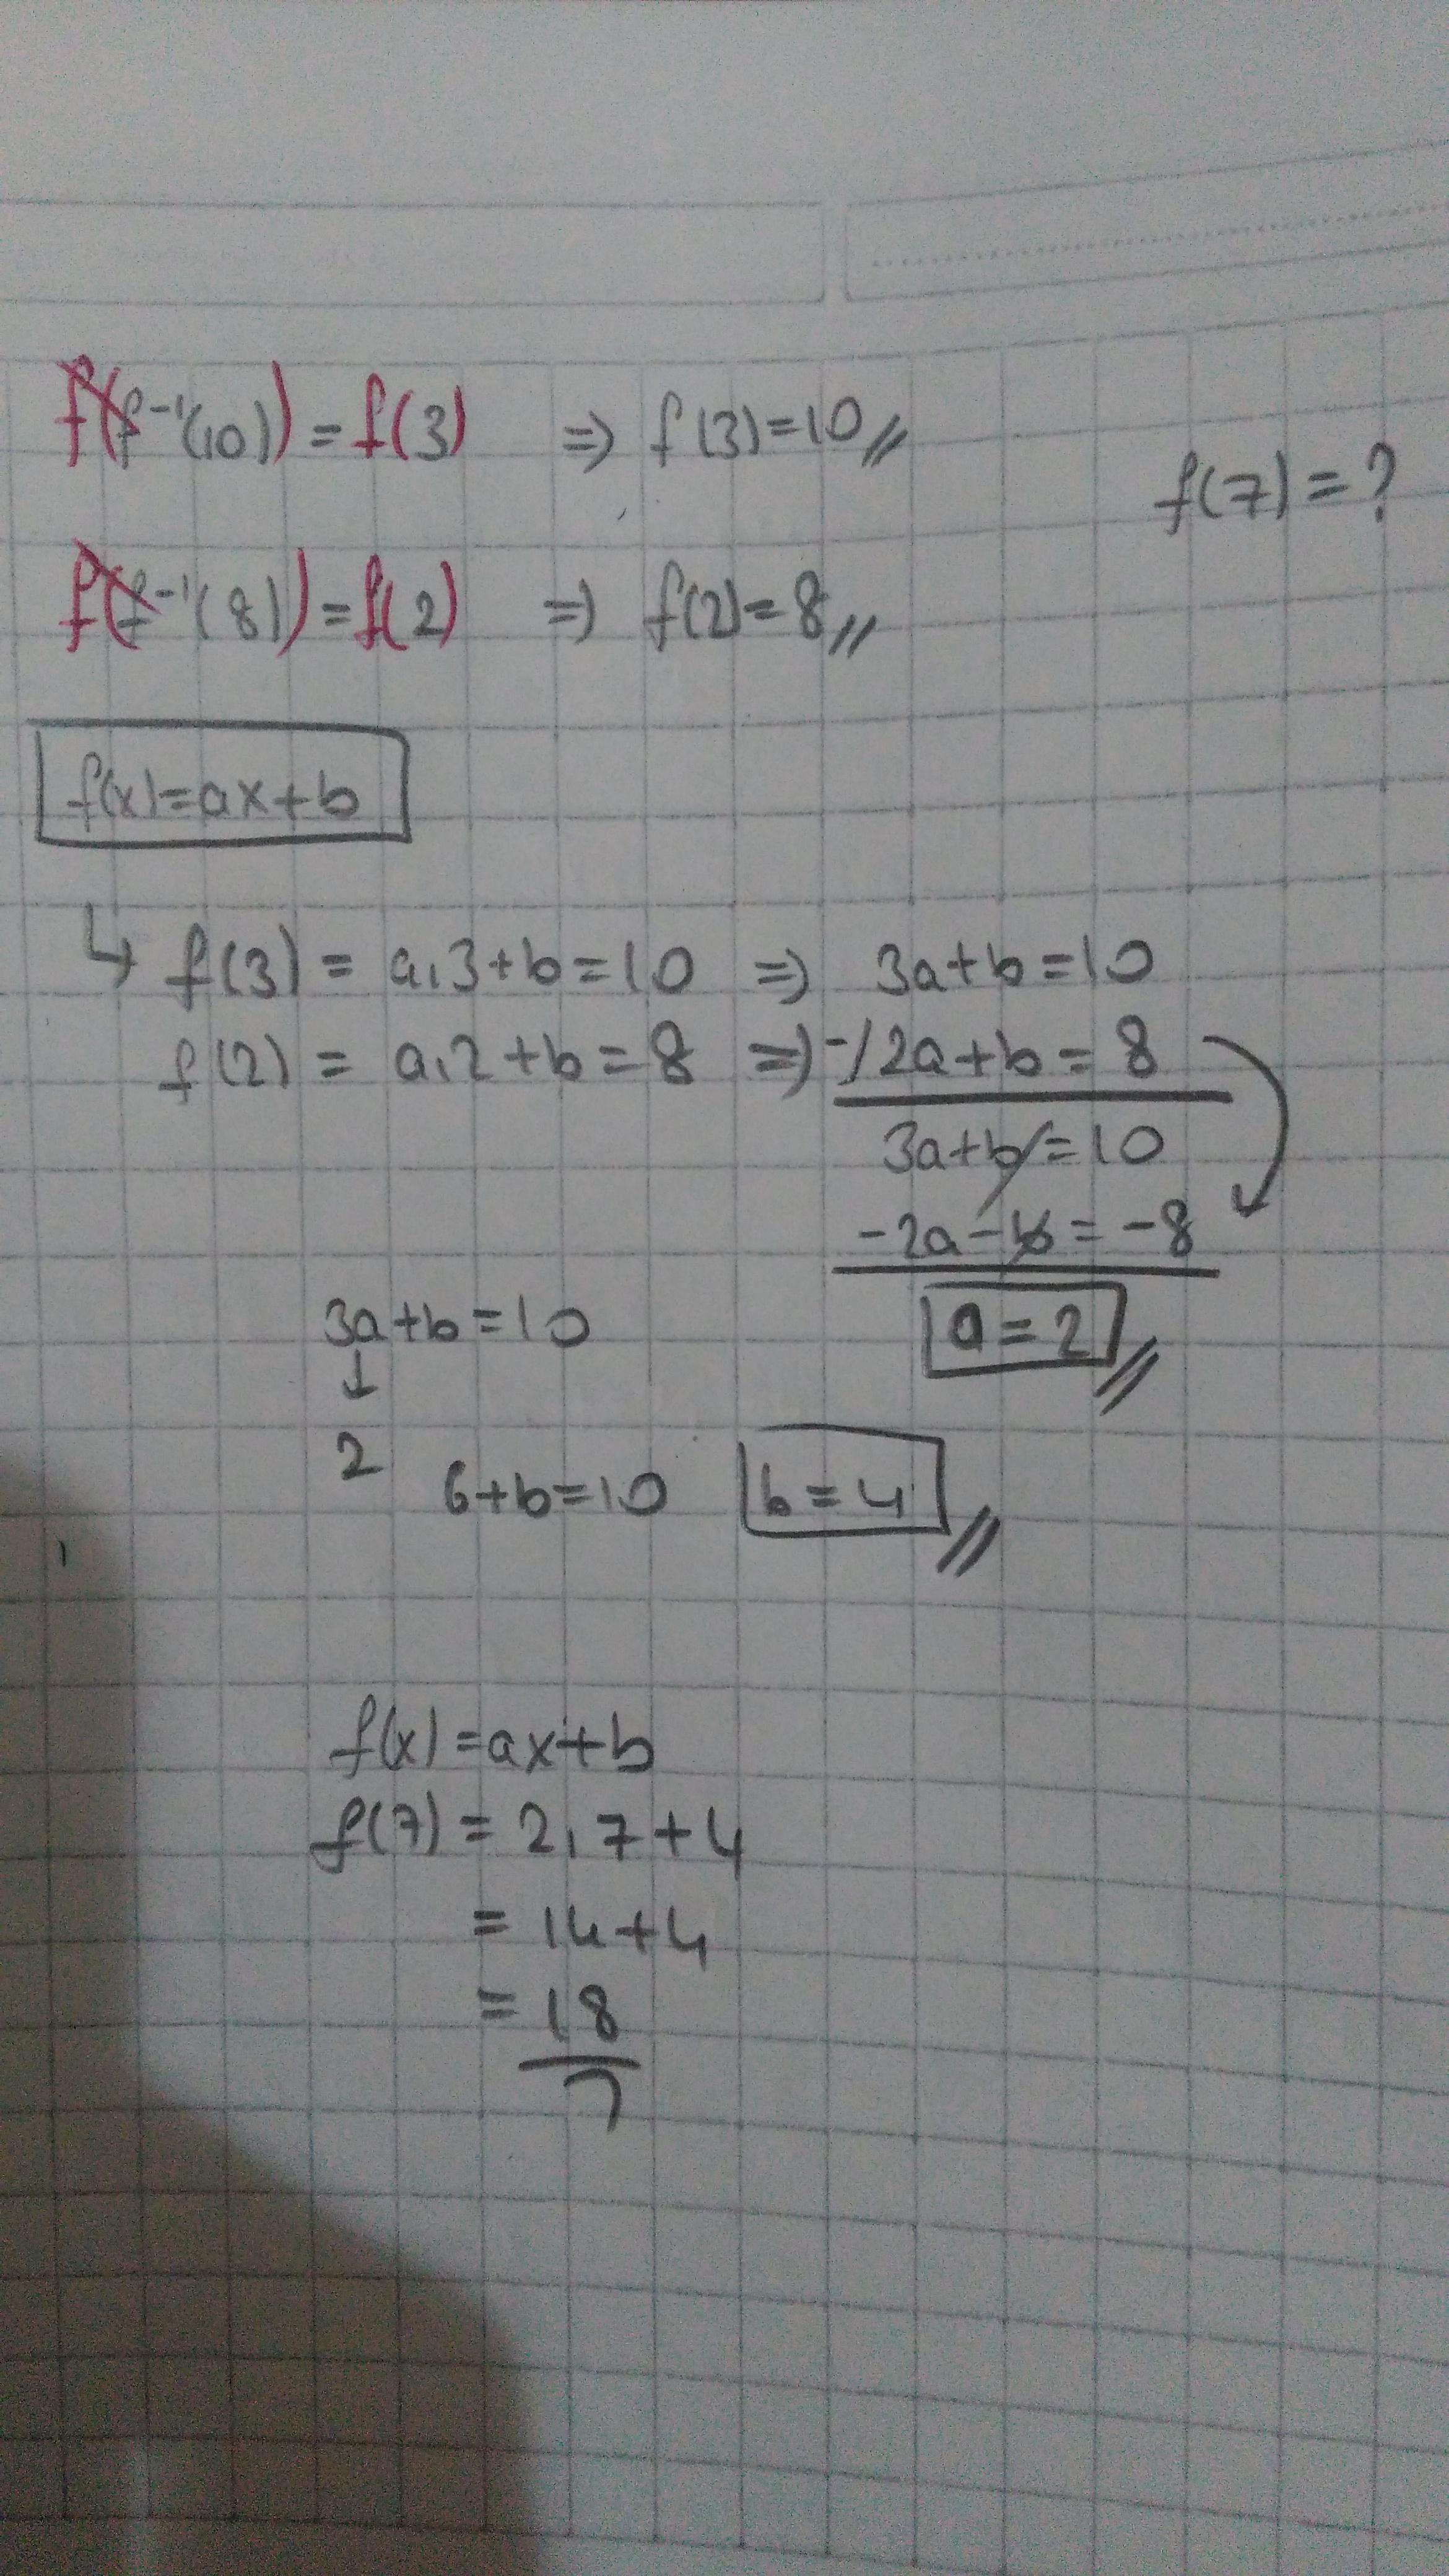 f(f⁻¹(10)) = f(3) ⇒ f(3)=10
f(7)=?
f(f⁻¹(8)) = f(2) ⇒ f(2)=8
f(x)=ax+b
↳ f(3) = a.3+b=10 ⇒ 3a+b=10
f(2) = a.2+b=8 ⇒ -/ 2a+b=8
3a+b=10
-2a-b=-8
a=2
3a+b=10
↓
2
6+b=10 b=4
f(x)=ax+b
f(7)=2.7+4
=14+4
=18